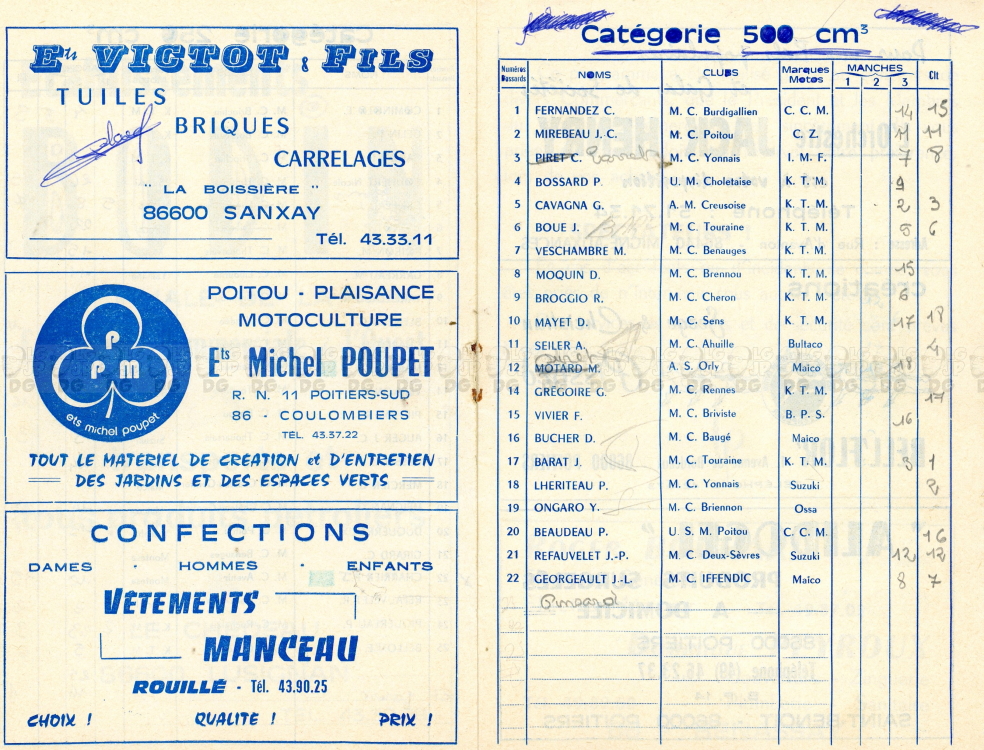 Ets VICTOT & FILS
TUILES
BRIQUES
CARRELAGES
" LA BOISSIÈRE "
86600 SANXAY
Tél. 43.33.11
P P P M
ets michel poupet
POITOU - PLAISANCE
MOTOCULTURE
Ets Michel POUPET
R. N. 11 POITIERS-SUD
86 - COULOMBIERS
TÉL. 43.37.22
TOUT LE MATERIEL DE CREATION et D'ENTRETIEN
DES JARDINS ET DES ESPACES VERTS
CONFECTIONS
DAMES · HOMMES · ENFANTS
VÊTEMENTS
MANCEAU
ROUILLÉ - Tél. 43.90.25
CHOIX ! QUALITE ! PRIX !
Catégorie 500 cm³
Numéros Dossards NOMS CLUBS Marques Motos MANCHES 1 2 3 Clt
1 FERNANDEZ C. M. C. Burdigallien C. C. M. 14 15
2 MIREBEAU J. C. M. C. Poitou C. Z. 11 11
3 PIRET C. M. C. Yonnais I. M. F. 7 8
4 BOSSARD P. U. M. Choletaise K. T. M. 9
5 CAVAGNA G. A. M. Creusoise K. T. M. 2 3
6 BOUE J. M. C. Touraine K. T. M. 6
7 VESCHAMBRE M. M. C. Benauges K. T. M.
8 MOQUIN D. M. C. Brennou K. T. M. 15
9 BROGGIO R. M. C. Cheron K. T. M. 6
10 MAYET D. M. C. Sens K. T. M. 17 18
11 SEILER A. M. C. Ahuille Bultaco 4
Piret
12 MOTARD M. A. S. Orly Maico 18
14 GRÉGOIRE G. M. C. Rennes K. T. M. 17
15 VIVIER F. M. C. Briviste B. P. S. 16
16 BUCHER D. M. C. Baugé Maico
17 BARAT J. M. C. Touraine K. T. M. 3 1
18 LHERITEAU P. M. C. Yonnais Suzuki 2
19 ONGARO Y. M. C. Briennon Ossa
20 BEAUDEAU P. U. S. M. Poitou C. C. M. 16
21 REFAUVELET J.-P. M. C. Deux-Sèvres Suzuki 12 12
22 GEORGEAULT J.-L. M. C. IFFENDIC Maico 8 7